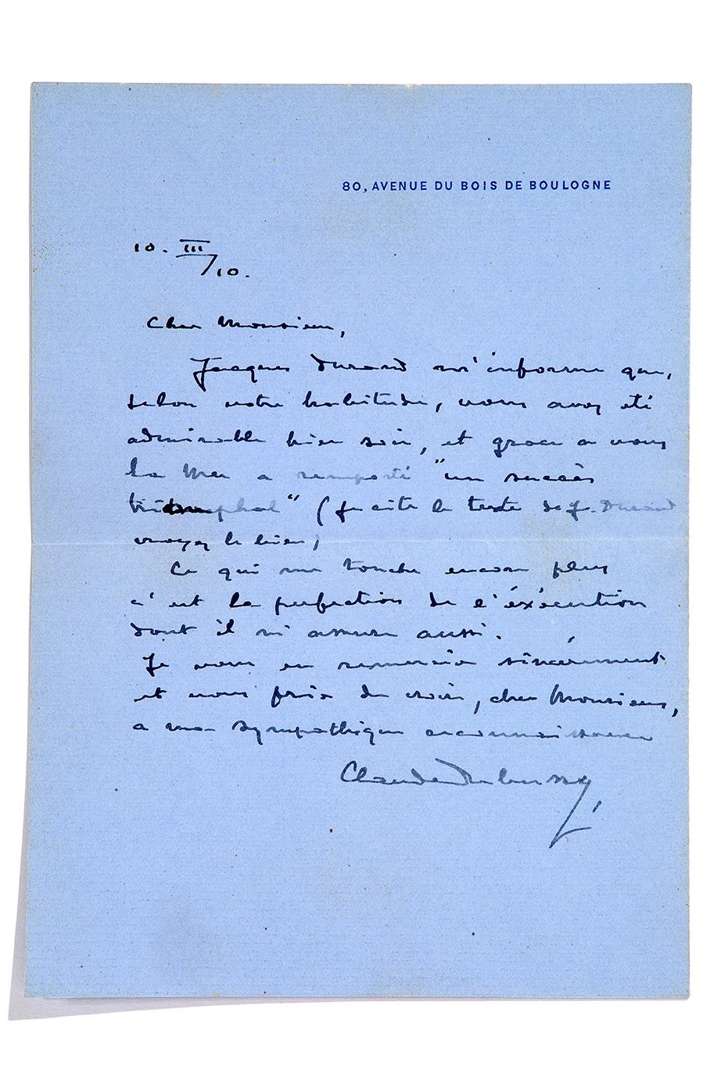 80, AVENUE DU BOIS DE BOULOGNE
10. III/10.
Cher Monsieur,
Jacques Durand m'informe que,
selon votre habitude, vous avez été
admirable hier soir, et grace a vous
la Mer a remporté "un succès
triomphal" (je cite le texte de J. Durand
croyez le bien)
Ce qui me touche encore plus
c'est la perfection de l'éxécution
dont il m'assure aussi.
Je vous en remercie sincèrement
et vous prie de croire, cher Monsieur,
a ma sympathique reconnaissance
Claude Debussy